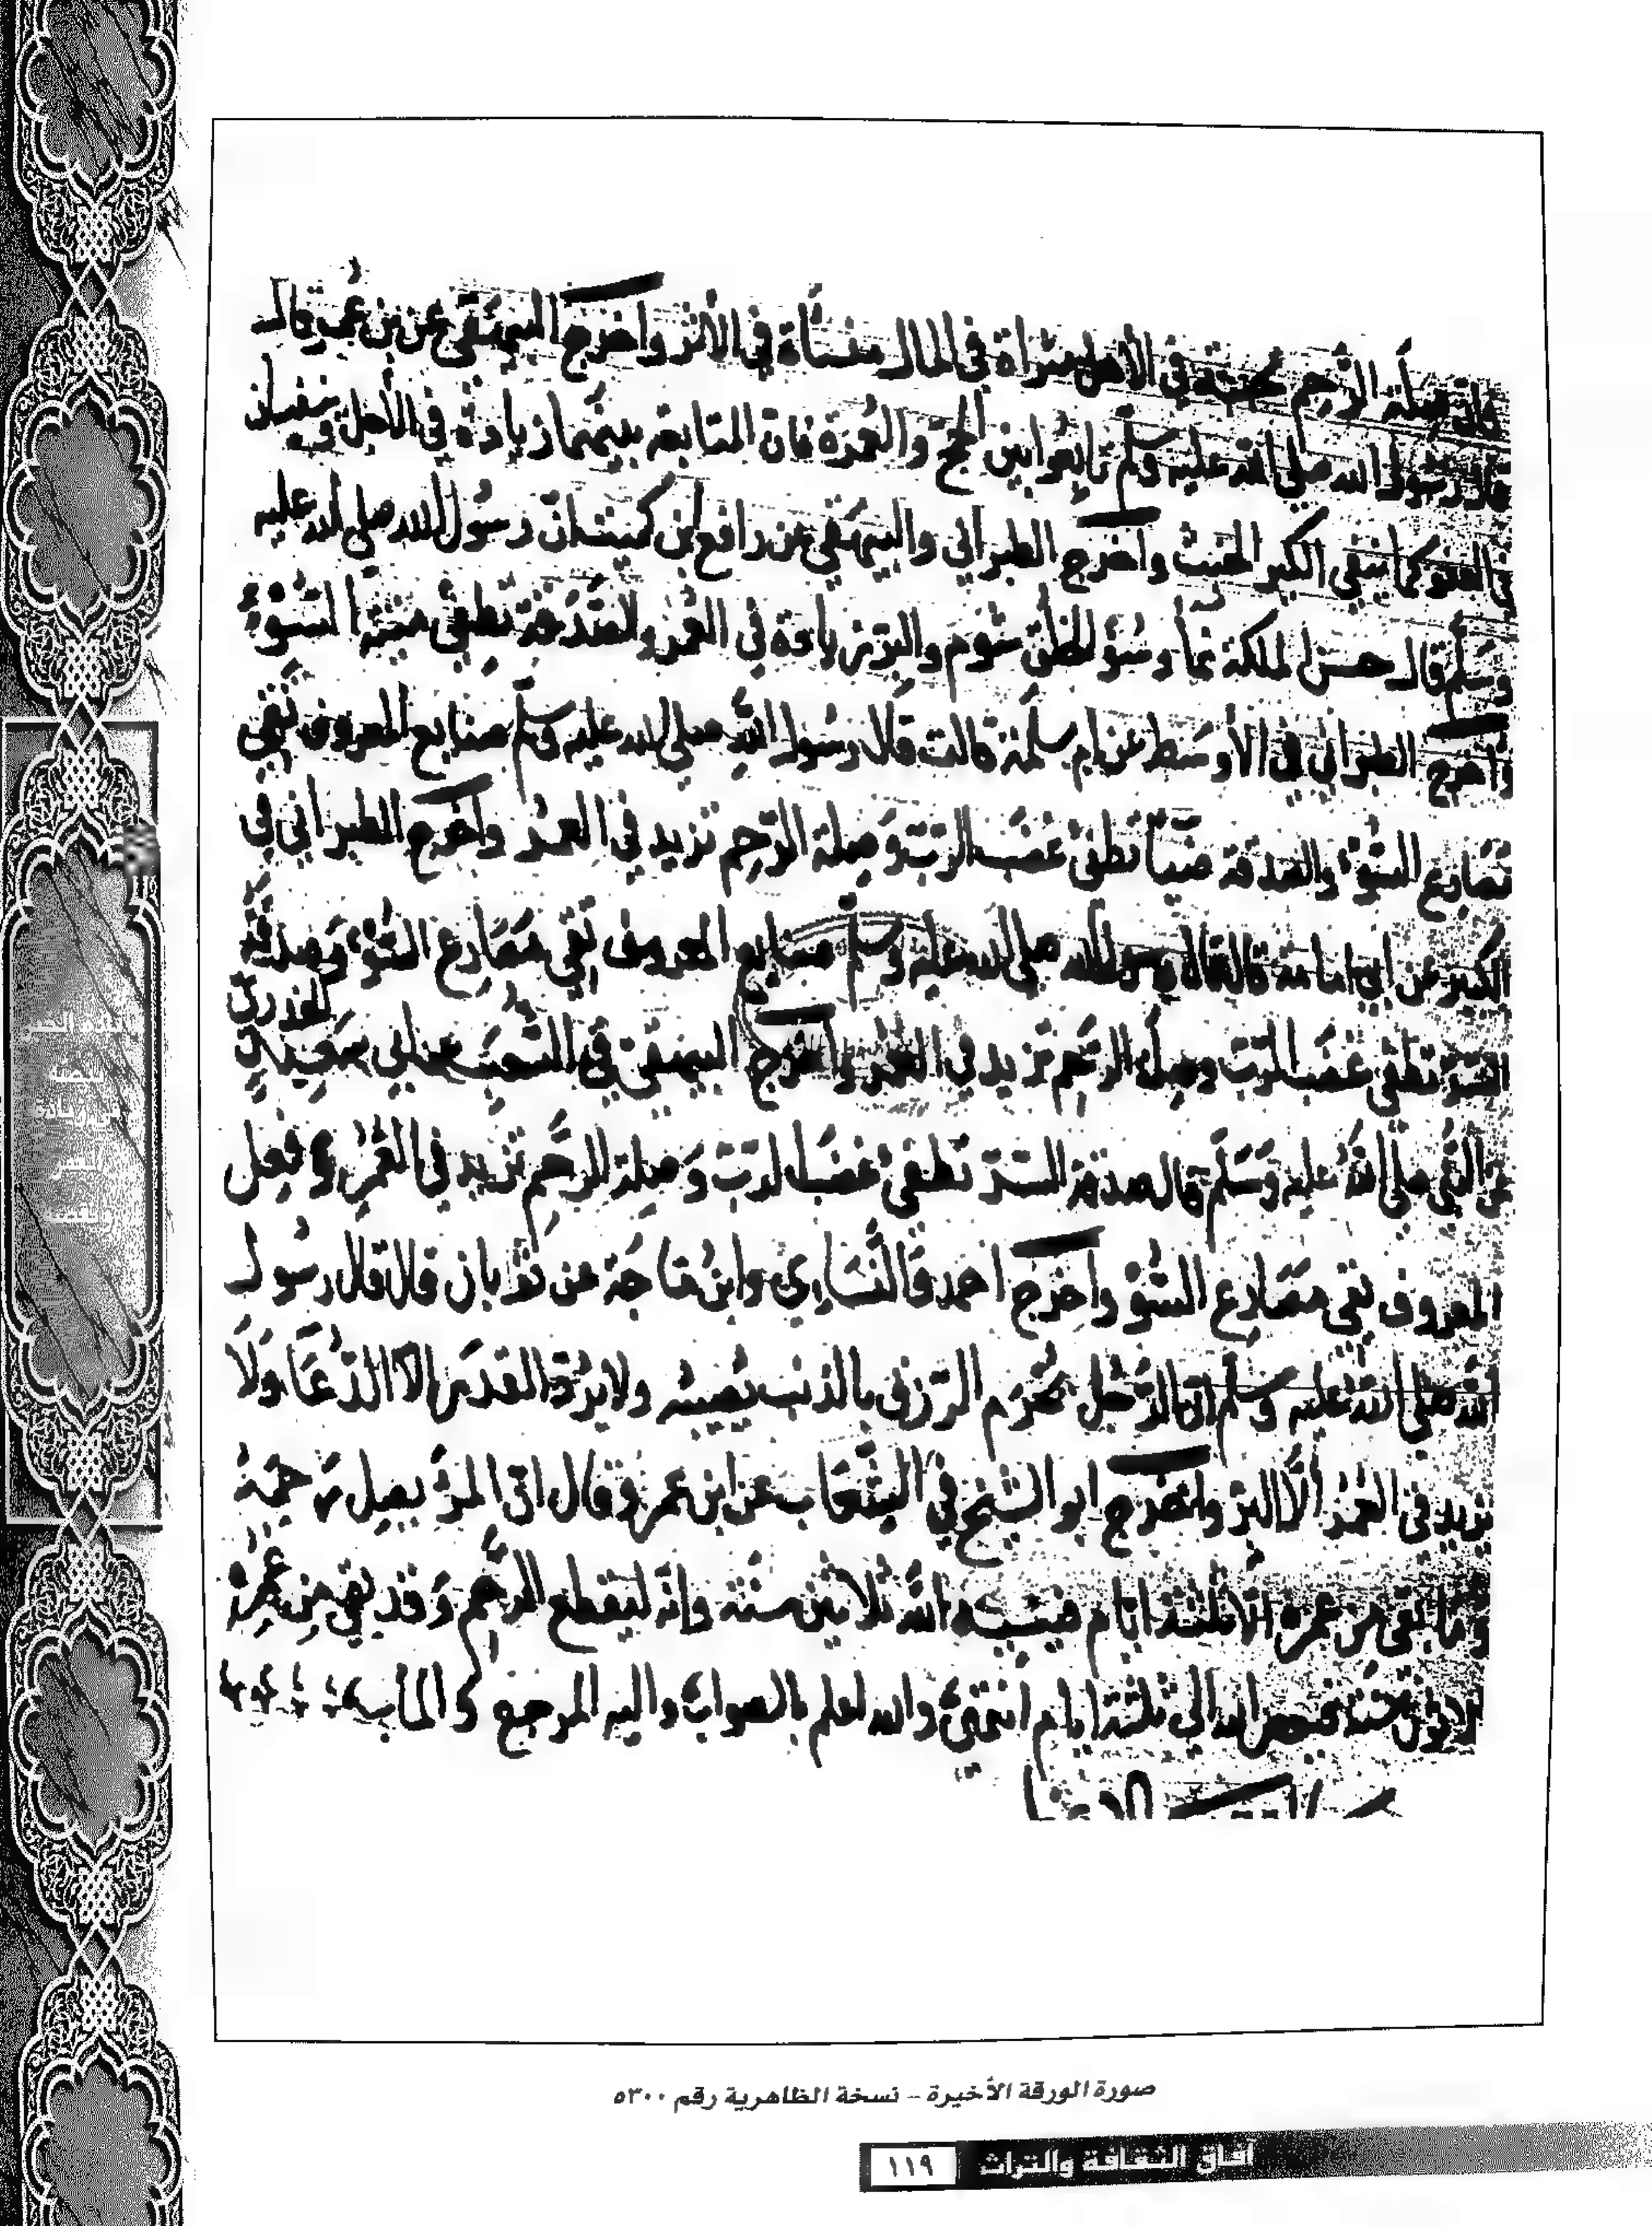 فان صلة الرحم محبة في الأهل مثراة في المال منسأة في الأثر وأخرج البيهقي عن بن عمر قال
قال رسول الله صلى الله عليه وسلم تابعوا بين الحج والعمرة فان المتابعة بينهما زيادة في الأجل وينفيان
الفقر كما ينفي الكير الخبث وأخرج الطبراني والبيهقي عن رافع بن مكيث ان رسول الله صلى الله عليه
وسلم قال حسن الملكة نماء وسؤ الخلق شوم والبر زيادة في العمر والصدقة تطفئ ميتة السوء
وأخرج الطبراني في الأوسط عن ام سلمة قالت قال رسول الله صلى الله عليه وسلم صنايع المعروف تقي
مصارع السوء والصدقة خفيا تطفئ غضب الرب وصلة الرحم تزيد في العمر وأخرج الطبراني في
الكبير عن ابي امامة قال قال رسول الله صلى الله عليه وسلم صنايع المعروف تقي مصارع السوء وصدقة
السر تطفئ غضب الرب وصلة الرحم تزيد في العمر وأخرج البيهقي في الشعب عن ابي سعيد الخدري
عن النبي صلى الله عليه وسلم قال صدقة السر تطفئ غضب الرب وصلة الرحم تزيد في العمر وفعل
المعروف تقي مصارع السؤ وأخرج احمد والنسائي وابن ماجة عن ثوبان قال قال رسول
الله صلى الله عليه وسلم ان الرجل يحرم الرزق بالذنب يصيبه ولا يرد القدر الا الدعا ولا
يزيد في العمر الا البر وأخرج ابو الشيخ في الثواب عن ابن عمرو قال ان المرء يصل رحمه
وما بقي من عمره الا ثلثة ايام فينسيه الله ثلاثين سنة وانه ليقطع الرحم وقد بقي من عمره
ثلاثون سنة فيصيره الله الى ثلثة ايام انتهى والله اعلم بالصواب واليه المرجع والمأب
صورة الورقة الأخيرة – نسخة الظاهرية رقم ٥٣٠٠
آفاق الثقافة والتراث ١١٩